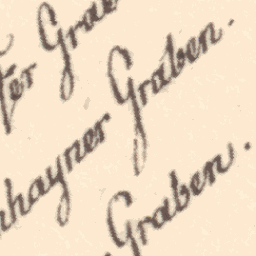 ter Gra
hayner Graben.
Graben.